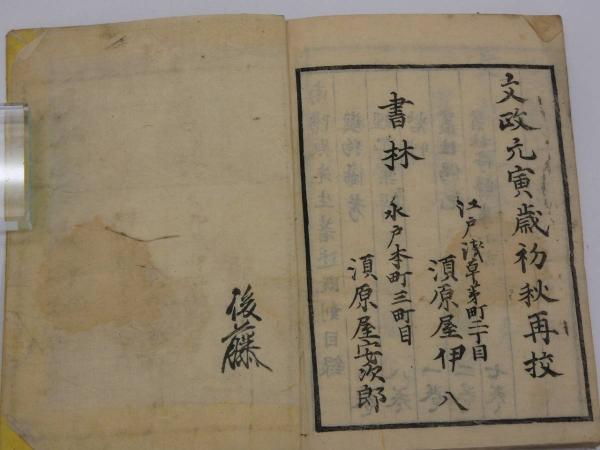 文政元寅歳初秋再挍
江戸浅草茅町二丁目
須原屋伊八
書林
水戸本町三町目
須原屋安次郎
後藤